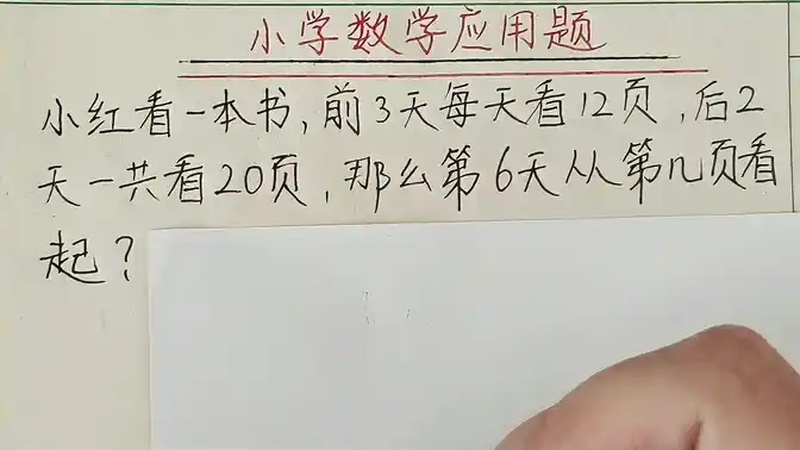 小学数学应用题
小红看一本书，前3天每天看12页，后2
天一共看20页，那么第6天从第几页看
起？